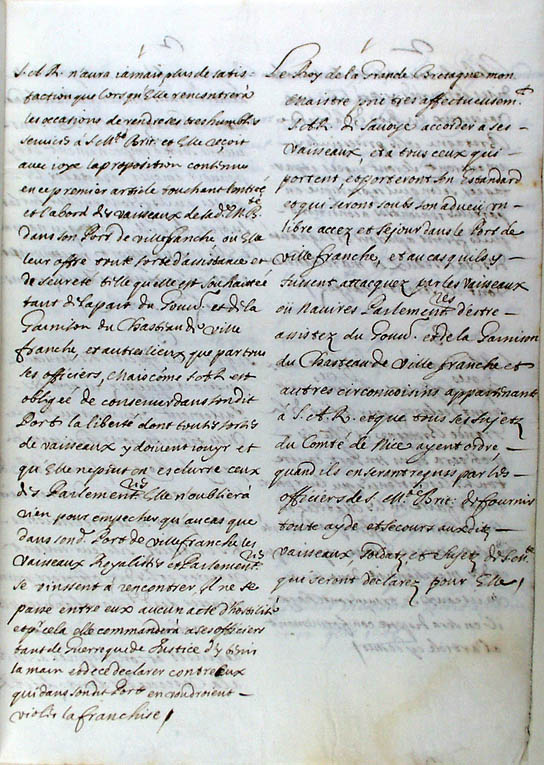 S.A.R. n'aura iamais plus de satis-
faction que lors qu'Elle rencontrerà
les occasions de rendre ses tres humbles
seruices à S. M.te Brit: et Elle reçoit
auec ioye la proposition contenue
en ce premier article touchant l'entrée
et l'abord des vaisseaux de lad. M.te B.
dans son Port de villefranche, où Elle
leur offre toute sorte d'assistance et
de seureté telle qu'elle est souhaitée
tant de la part du Gouu.r et de la
Garnison du Chasteau de ville
franche, et autres lieux que par tous
ses officiers, Mais côme S.A.R. est
obligée de conseruer dans son dit
Port la liberté dont toutes sortes
de vaisseaux y doiuent iouyr et
qu'Elle ne peut en esclurre ceux
des Parlement.res Elle n'oublierà
rien pour empescher qu'au cas que
dans son d. Port de villefranche les
vaisseaux Royalistes et Parlement.res
se vinssent à rencontrer, Il ne se
passe entre eux aucun acte d'hostilité
et p.r cela elle commanderà a ses officiers
tant de Guerre que de Justice d'y tenir
la main et de se declarer contre ceux
qui dans son dit Port en voudroient
violer la franchise /
Le Roy de la Grande Bretagne mon
Maistre prie tres affectueusem.t
S.A.R. de Sauoye accorder a ses
vaisseaux, et a tous ceux qui
portent, et porteront son Estandard
et qui seront soubs son adueu, un
libre accez et seiour dans le Port de
ville franche, et au cas qu'ils y
fussent attacquez par les vaisseaux
où Nauires Parlement.res d'estre
assistez du Gouu.r et de la Garnison
du Chasteau de ville franche et
autres circonuoisins appartenant
à S.A.R. et que tous ses sujets
du Comté de Nice ayent ordre,
quand ils en seront requis par les
officiers de S. M.te Brit: de fournir
toute ayde et secours aux dits
vaisseaux soldats et sujets de
qui seront declarez pour Elle /